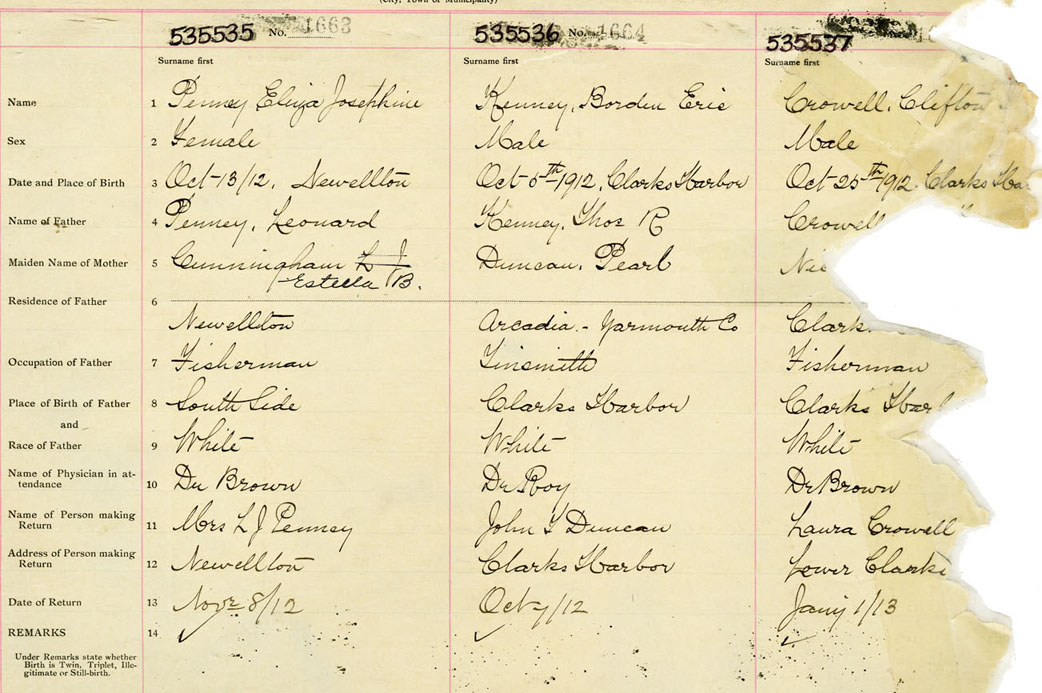 (City, Town or Municipality)
535535 No. 1663 535536 No. 1664 535537
Surname first Surname first Surname first
Name 1 Penney Eliza Josephine Kenney, Borden Eric Crowell, Clifton
Sex 2 Female Male Male
Date and Place of Birth 3 Oct 13/12, Newellton Oct 5th 1912, Clarks Harbor Oct 25th 1912 Clarks Ha
Name of Father 4 Penney, Leonard Kenney, Thos R Crowell
Maiden Name of Mother 5 Cunningham L J Duncan, Pearl Nic
Estella B.
Residence of Father 6
Newellton Arcadia - Yarmouth Co Clark
Occupation of Father 7 Fisherman Tinsmith Fisherman
Place of Birth of Father 8 South Side Clarks Harbor Clarks Har
and
Race of Father 9 White White White
Name of Physician in at-
tendance 10 Dr Brown Dr Roy Dr Brown
Name of Person making
Return 11 Mrs L J Penney John Duncan Laura Crowell
Address of Person making
Return 12 Newellton Clarks Harbor Lower Clarks
Date of Return 13 Novr 8/12 Oct 7/12 Jany 1/13
REMARKS 14 ✓ ✓ ✓
Under Remarks state whether
Birth is Twin, Triplet, Ille-
gitimate or Still-birth.